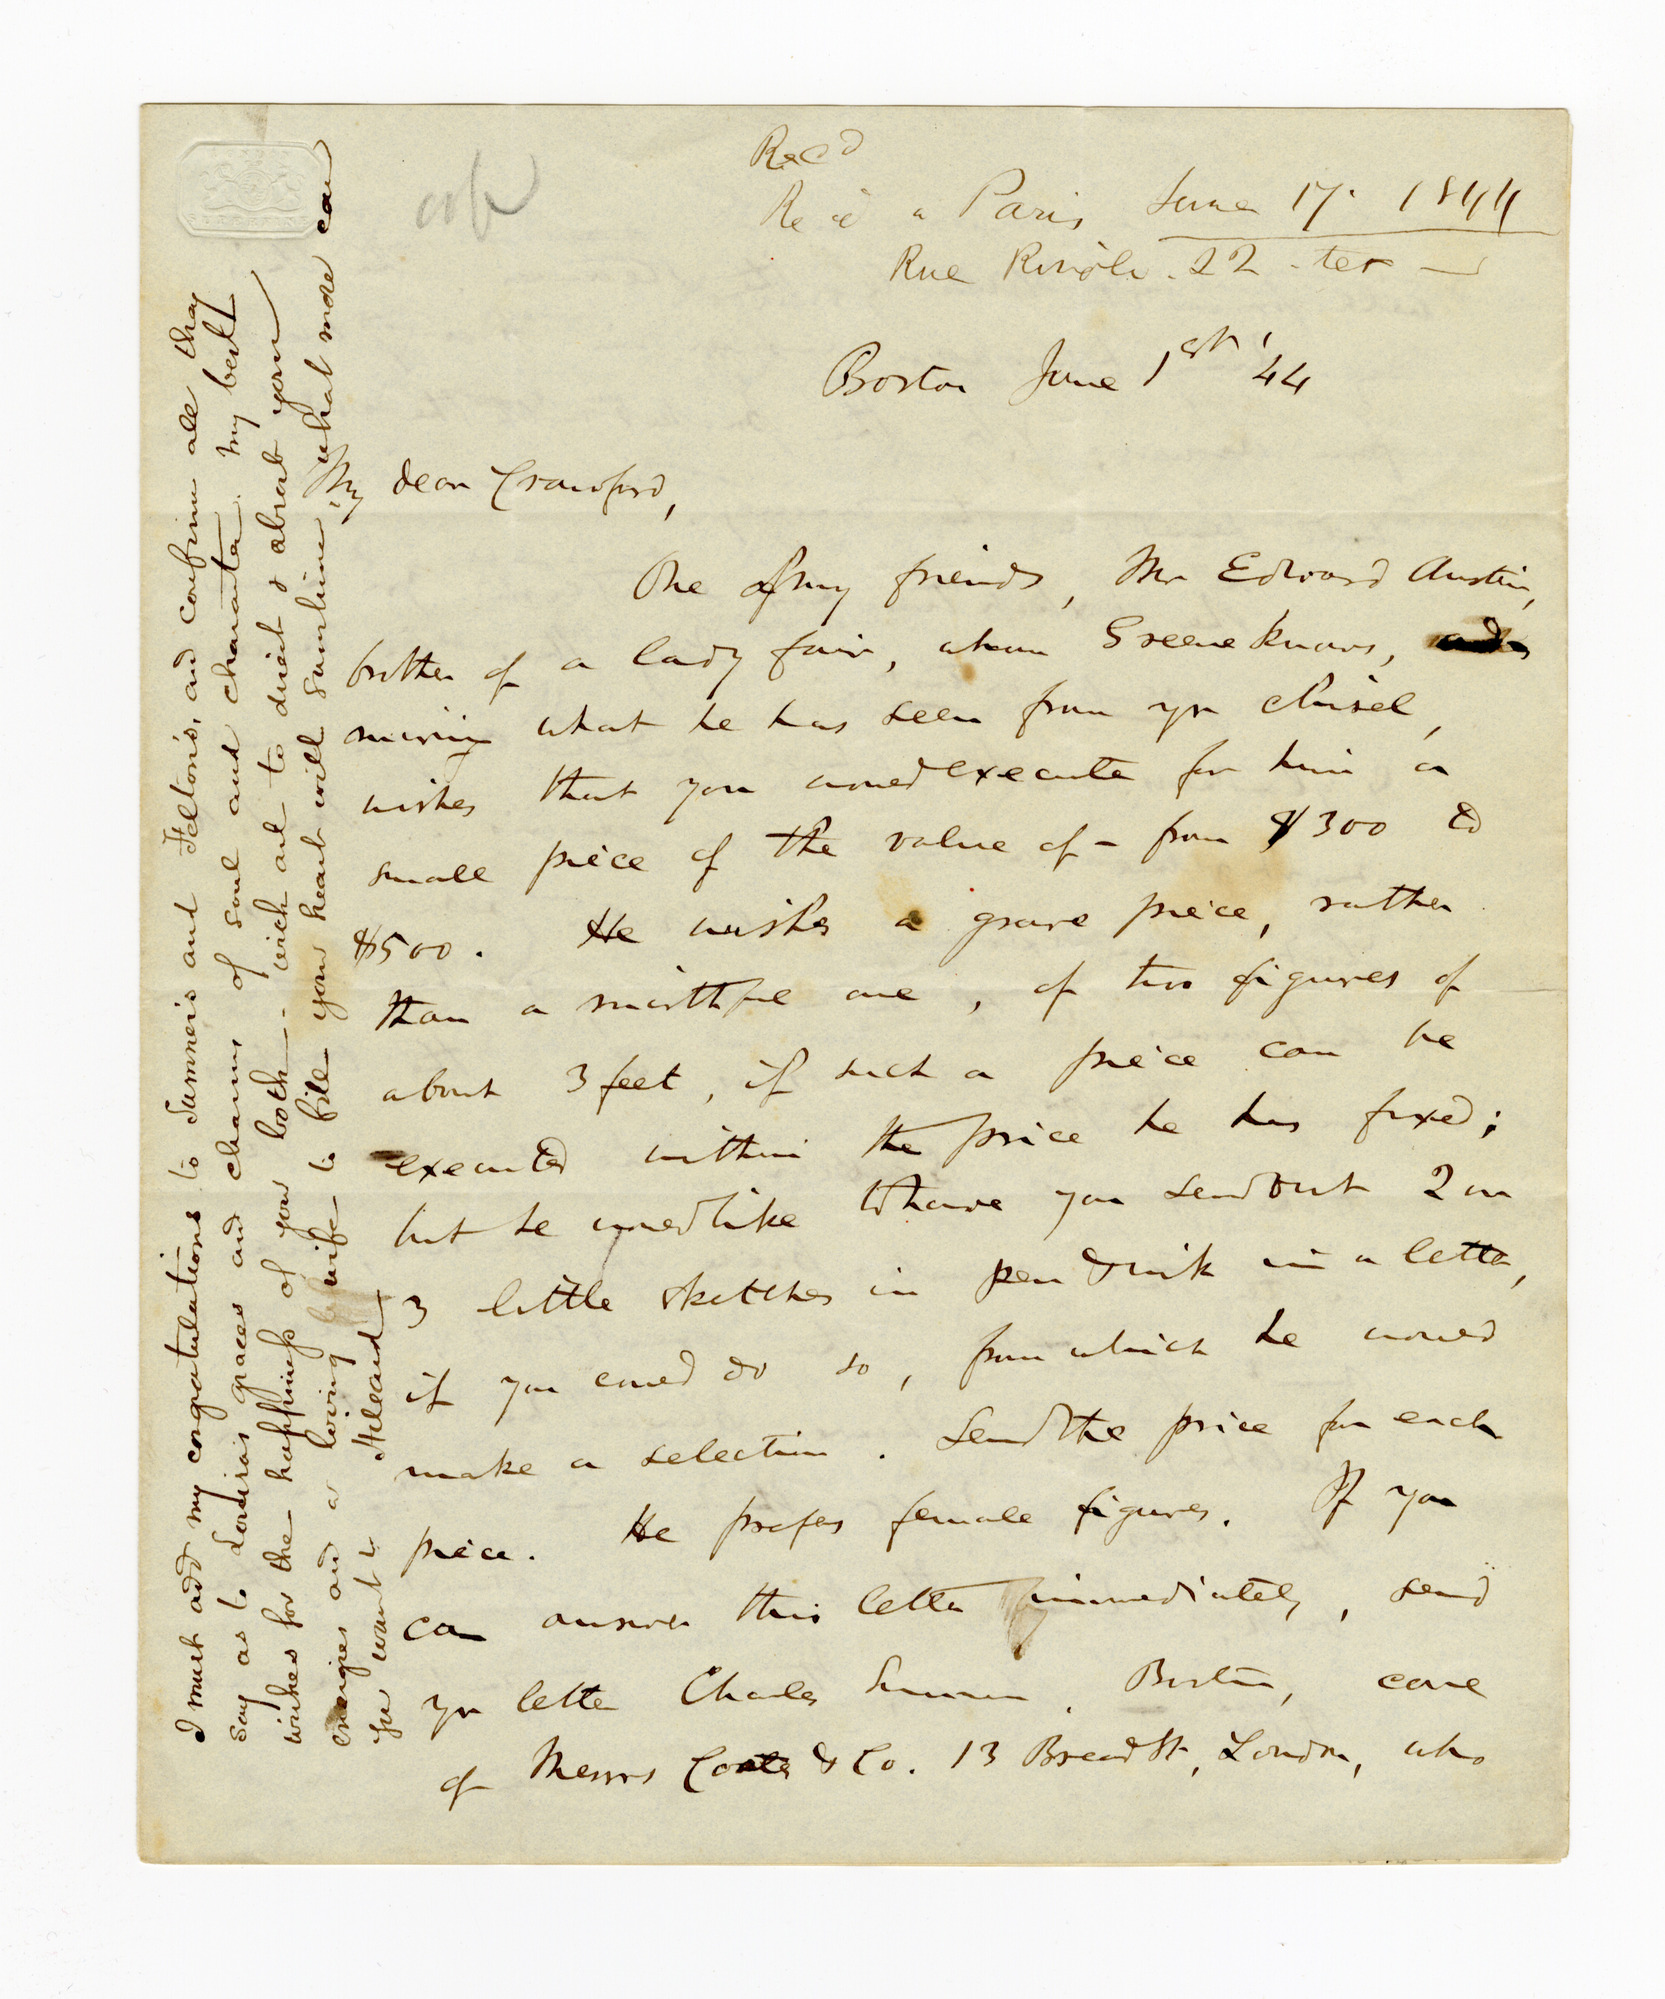 Recd
Rec'd a Paris June 17. 1844
Rue Rivoli. 22 ter
Boston June 1st '44
My dear Crawford,
One of my friends, Mr Edward Austin,
brother of a lady fair, whom Greene knows, ad
miring what he has seen from yr chisel,
wishes that you would execute for him a
small piece of the value of - from $300 to
$500. He wishes a grave piece, rather
than a mirthful one, of two figures of
about 3 feet, if such a piece can be
executed within the price he has fixed;
but he would like to have you send out 2 or
3 little sketches in pen & ink in a letter,
if you could do so, from which he would
make a selection. Send the price for each
piece. He prefers female figures. If you
can answer this letter immediately, send
yr letter Charles Sumner, Boston, care
of Messrs Coates & Co. 13 Bread St, London, who
I must add my congratulations to Sumner's and Felton's, and confirm all they
say as to Louisa's graces and charms of soul and character. My best
wishes for the happiness of you both - with art to direct & absorb your
energies and a loving wife to fill your heart with sunshine, what more can
you want?
Hillard